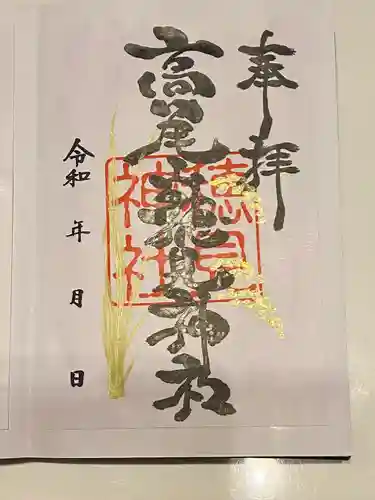 奉拝
高尾穂見神社
穂見
神社
令和 年 月 日